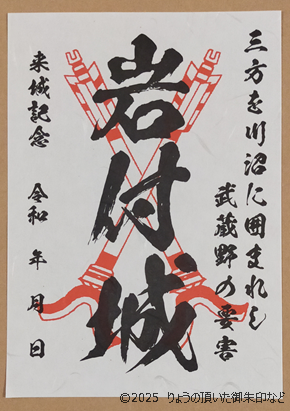 三方を川沼に囲まれし
武蔵野の要害
岩付城
来城記念　令和　年　月　日
©2025 りょうの頂いた御朱印など